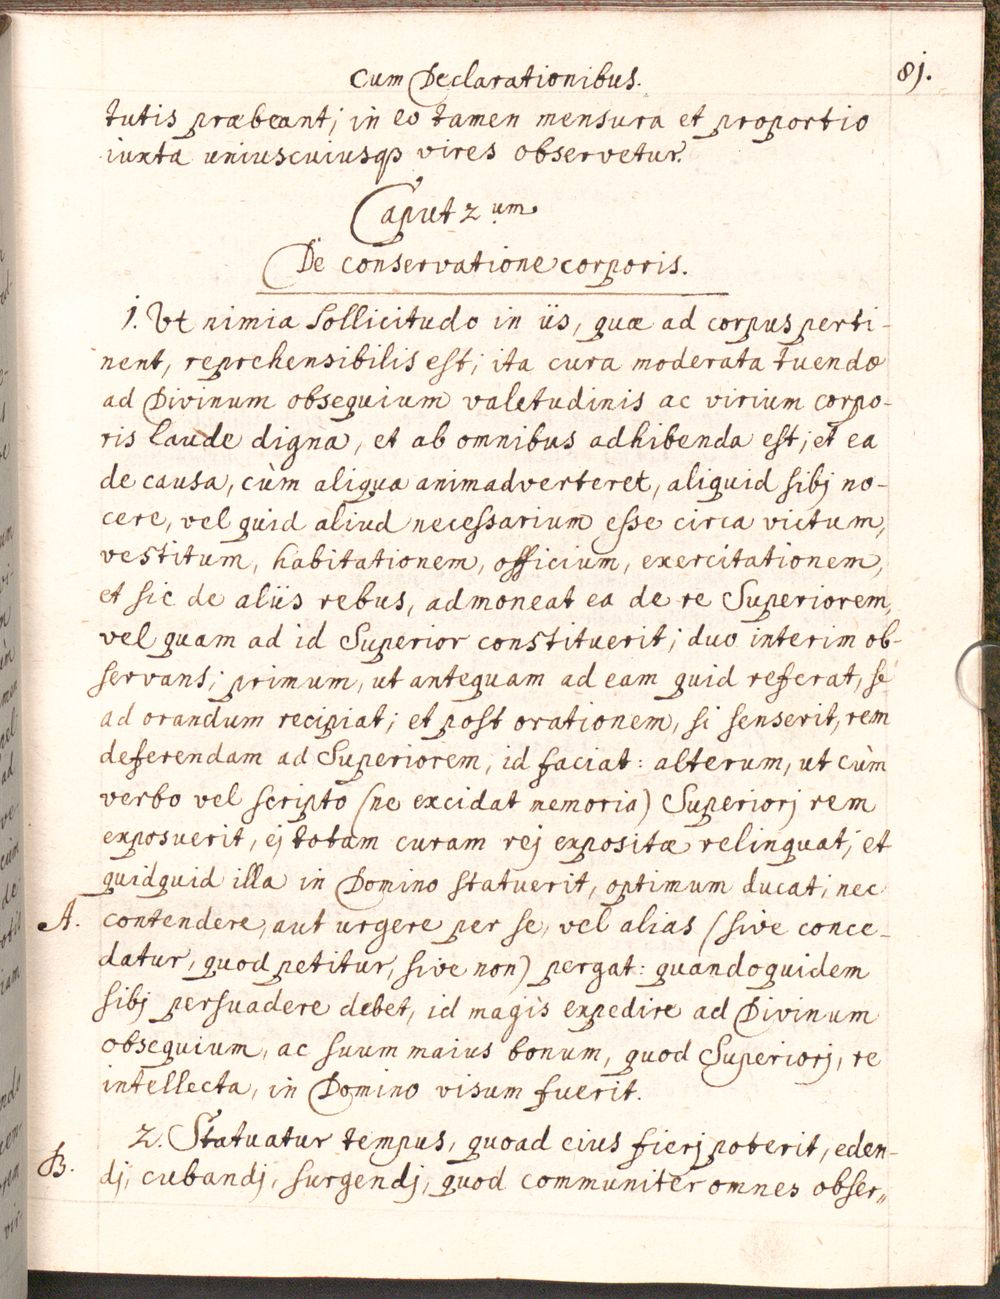 Cum Declarationibus.
81.
tutis præbeant; in eo tamen mensura et proportio
iuxta uniuscuiusqȝ vires observetur.
Caput 2.um
De conservatione corporis.
1. Ut nimia sollicitudo in iis, quæ ad corpus perti-
nent, reprehensibilis est; ita cura moderata tuendæ
ad Divinum obsequium valetudinis ac virium corpo-
ris laude digna, et ab omnibus adhibenda est; et ea
de causa, cùm aliqua animadverteret, aliquid sibj no-
cere, vel quid aliud necessarium esse circa victum,
vestitum, habitationem, officium, exercitationem,
et sic de aliis rebus, admoneat ea de re Superiorem,
vel quam ad id Superior constituerit; duo interim ob-
servans; primum, ut antequam ad eam quid referat, sé
ad orandum recipiat; et post orationem, si senserit, rem
deferendam ad Superiorem, id faciat: alterum, ut cùm
verbo vel scripto (ne excidat memoria) Superiorj rem
exposuerit, ej totam curam rej expositæ relinquat; et
quidquid illa in Domino statuerit, optimum ducat; nec
A. contendere, aut urgere per se, vel alias (sive conce-
datur, quod petitur, sive non) pergat: quandoquidem
sibj persuadere debet, id magìs expedire ad Divinum
obsequium, ac suum maius bonum, quod Superiorj, re
intellecta, in Domino visum fuerit.
2. Statuatur tempus, quoad eius fierj poterit, eden-
B. dj, cubandj, surgendj, quod communiter omnes obser„